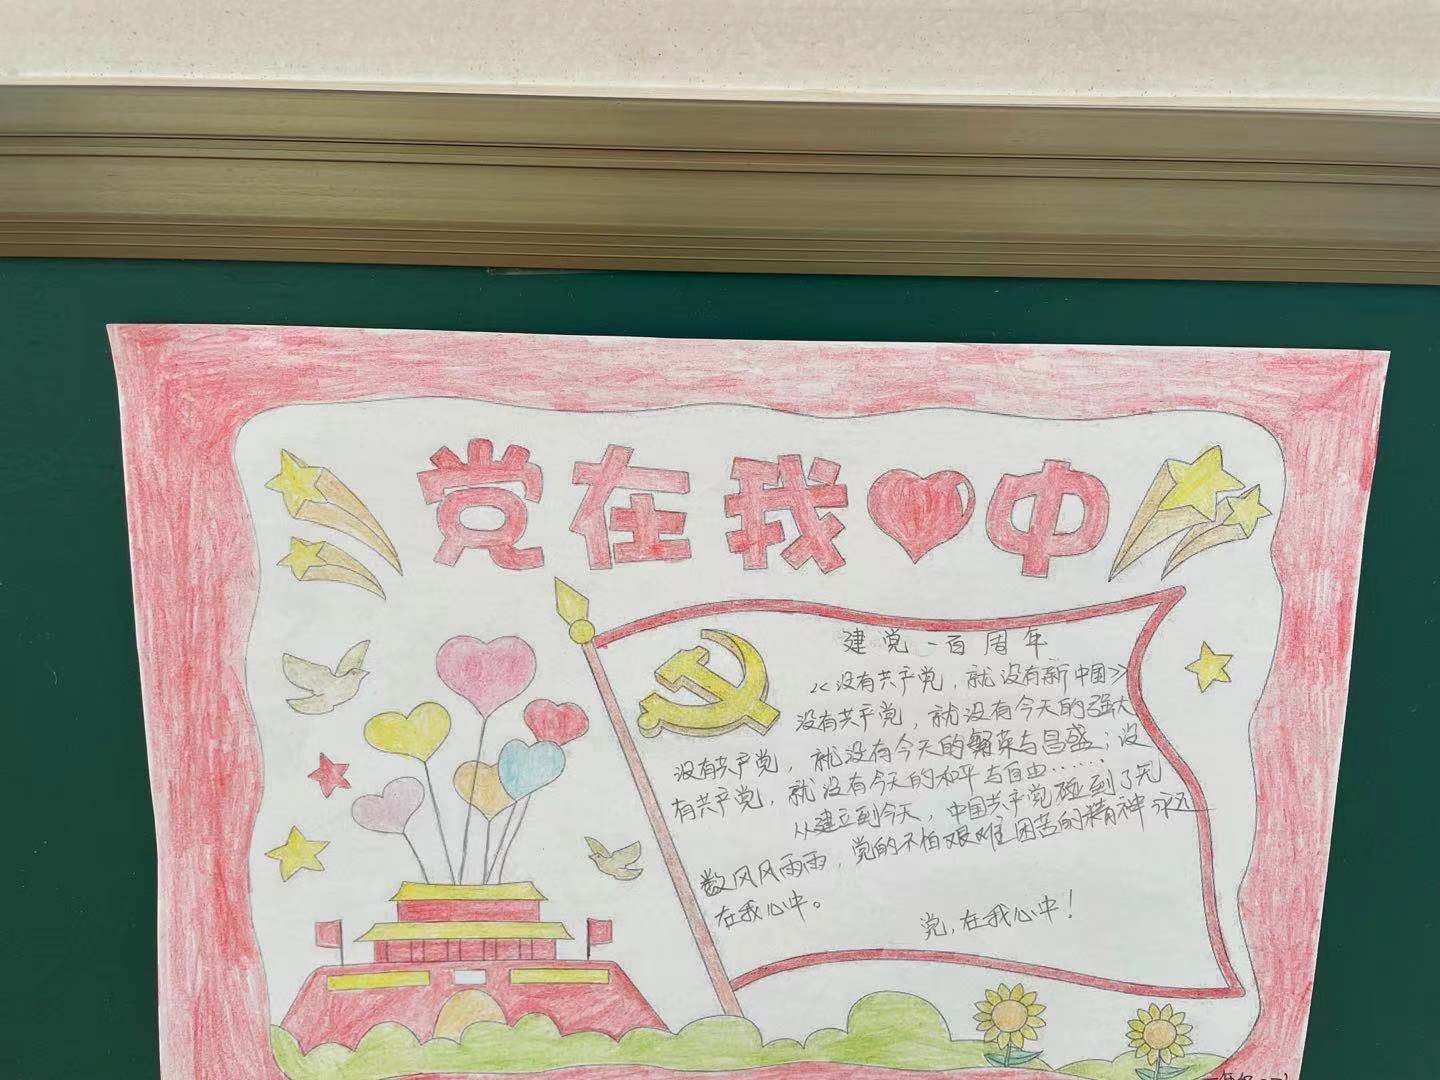 党在我中
建党一百周年
《没有共产党，就没有新中国》
没有共产党，就没有今天的强大
没有共产党，就没有今天的繁荣与昌盛；没
有共产党，就没有今天的和平与自由……
从建立到今天，中国共产党碰到了无
数风风雨雨，党的不怕艰难困苦的精神永远
在我心中。
党，在我心中！